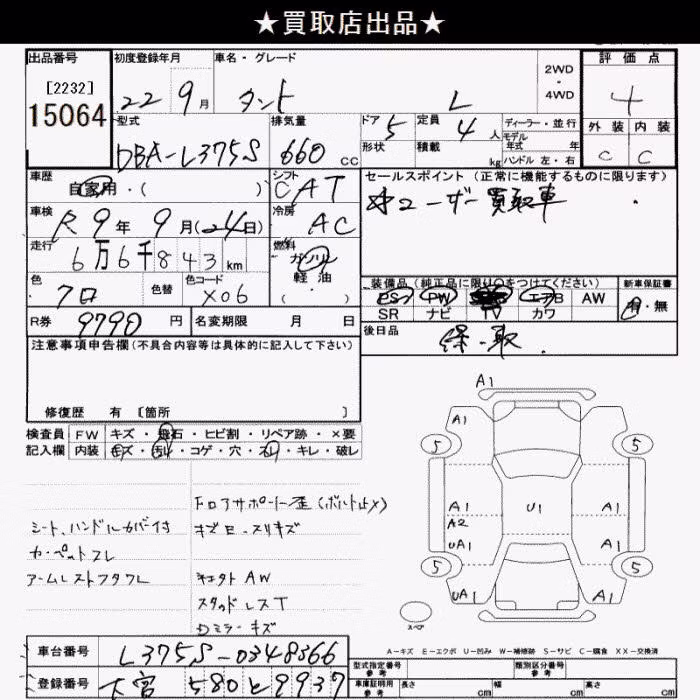 ★買取店出品★
出品番号
[2232]
15064
初度登録年月
22 9月
車名・グレード
タント L
2WD
・
4WD
評価点
4
外装 内装
C C
型式
DBA-L375S
排気量
660 cc
ドア 5
形状
定員 4人
積載 kg
ディーラー・並行
モデル
年式 年
ハンドル 左・右
車歴
自家用・( )
シフト
CAT
セールスポイント(正常に機能するものに限ります)
ユーザー買取車
車検
R9年9月(24日)
冷房
AC
走行
6万6千843km
燃料
ガソリン
軽油
( )
色
クロ
色替
色コード
X06
装備品(純正品に限り○をつけてください)
PS PW エアB AW
SR ナビ TV カワ
新車保証書
有・無
R券 9790円
名変期限 月 日
後日品
保・取
注意事項申告欄(不具合内容等は具体的に記入して下さい)
修復歴 有 [箇所 ]
検査員
記入欄
FW キズ・飛石・ヒビ割・リペア跡・×要
内装 キズ・汚れ・コゲ・穴・スレ・キレ・破レ
フロアサポート歪(ボルト止メ)
シート、ハンドルカバー付
キズ
スリキズ
カーペットスレ
アームレストフタワレ
AW
スタッドレスT
Dミラーキズ
A1
A1
5 5
A1 U1 A1
A2
UA1 A1
5 5
UA1 A1
スペア
A-キズ E-エクボ U-凹み W-補修跡 S-サビ C-腐食 XX-交換済
車台番号
L375S-0348366
登録番号
大宮 580 と 9937
型式指定番号
参考
類別区分番号
参考
車庫証明用
参考
長さ cm 幅 cm 高さ cm